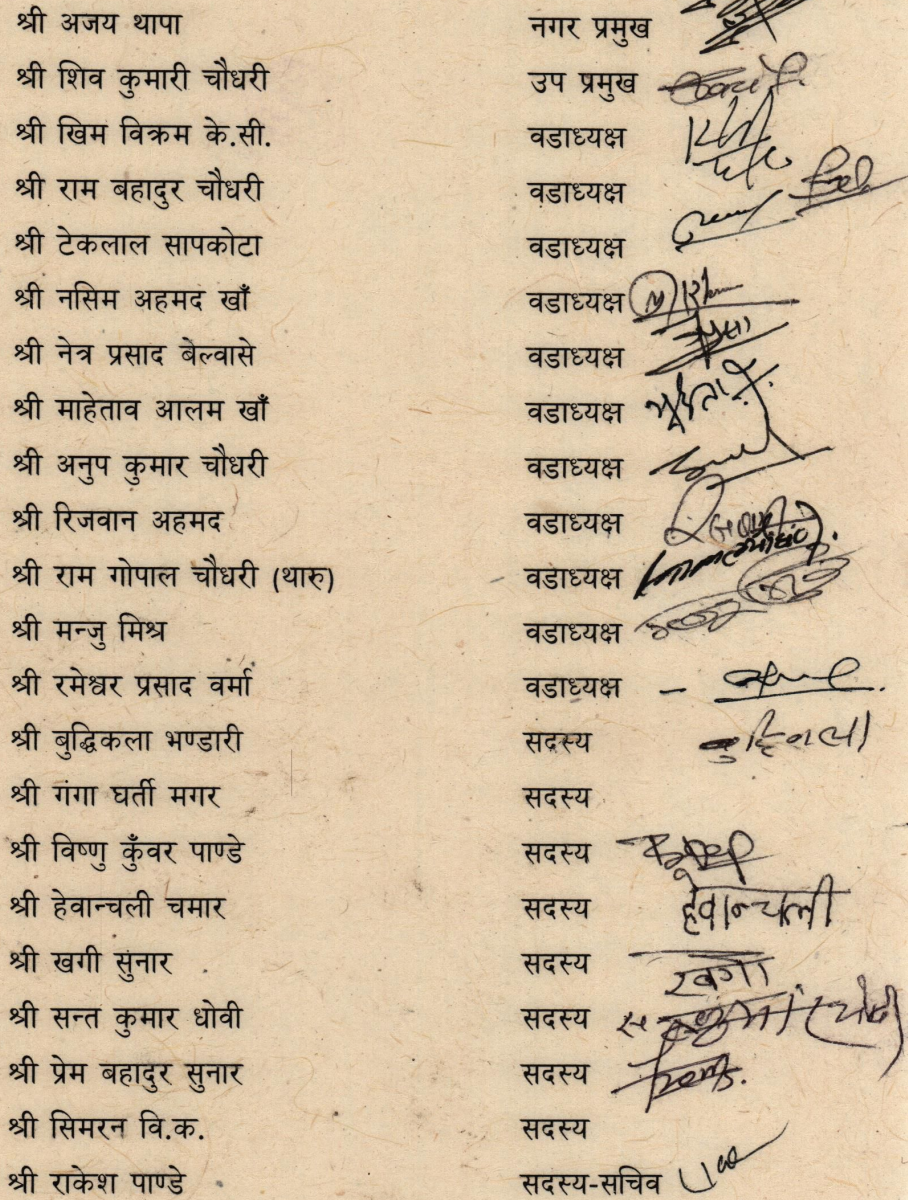 श्री अजय थापा नगर प्रमुख
श्री शिव कुमारी चौधरी उप प्रमुख
श्री खिम विक्रम के.सी. वडाध्यक्ष
श्री राम बहादुर चौधरी वडाध्यक्ष
श्री टेकलाल सापकोटा वडाध्यक्ष
श्री नसिम अहमद खाँ वडाध्यक्ष
श्री नेत्र प्रसाद बेल्वासे वडाध्यक्ष
श्री माहेताव आलम खाँ वडाध्यक्ष
श्री अनुप कुमार चौधरी वडाध्यक्ष
श्री रिजवान अहमद वडाध्यक्ष
श्री राम गोपाल चौधरी (थारु) वडाध्यक्ष
श्री मन्जु मिश्र वडाध्यक्ष
श्री रमेश्वर प्रसाद वर्मा वडाध्यक्ष
श्री बुद्धिकला भण्डारी सदस्य
श्री गंगा घर्ती मगर सदस्य
श्री विष्णु कुँवर पाण्डे सदस्य
श्री हेवान्चली चमार सदस्य हेवान्चली
श्री खगी सुनार सदस्य खगी
श्री सन्त कुमार धोवी सदस्य
श्री प्रेम बहादुर सुनार सदस्य
श्री सिमरन वि.क. सदस्य
श्री राकेश पाण्डे सदस्य-सचिव